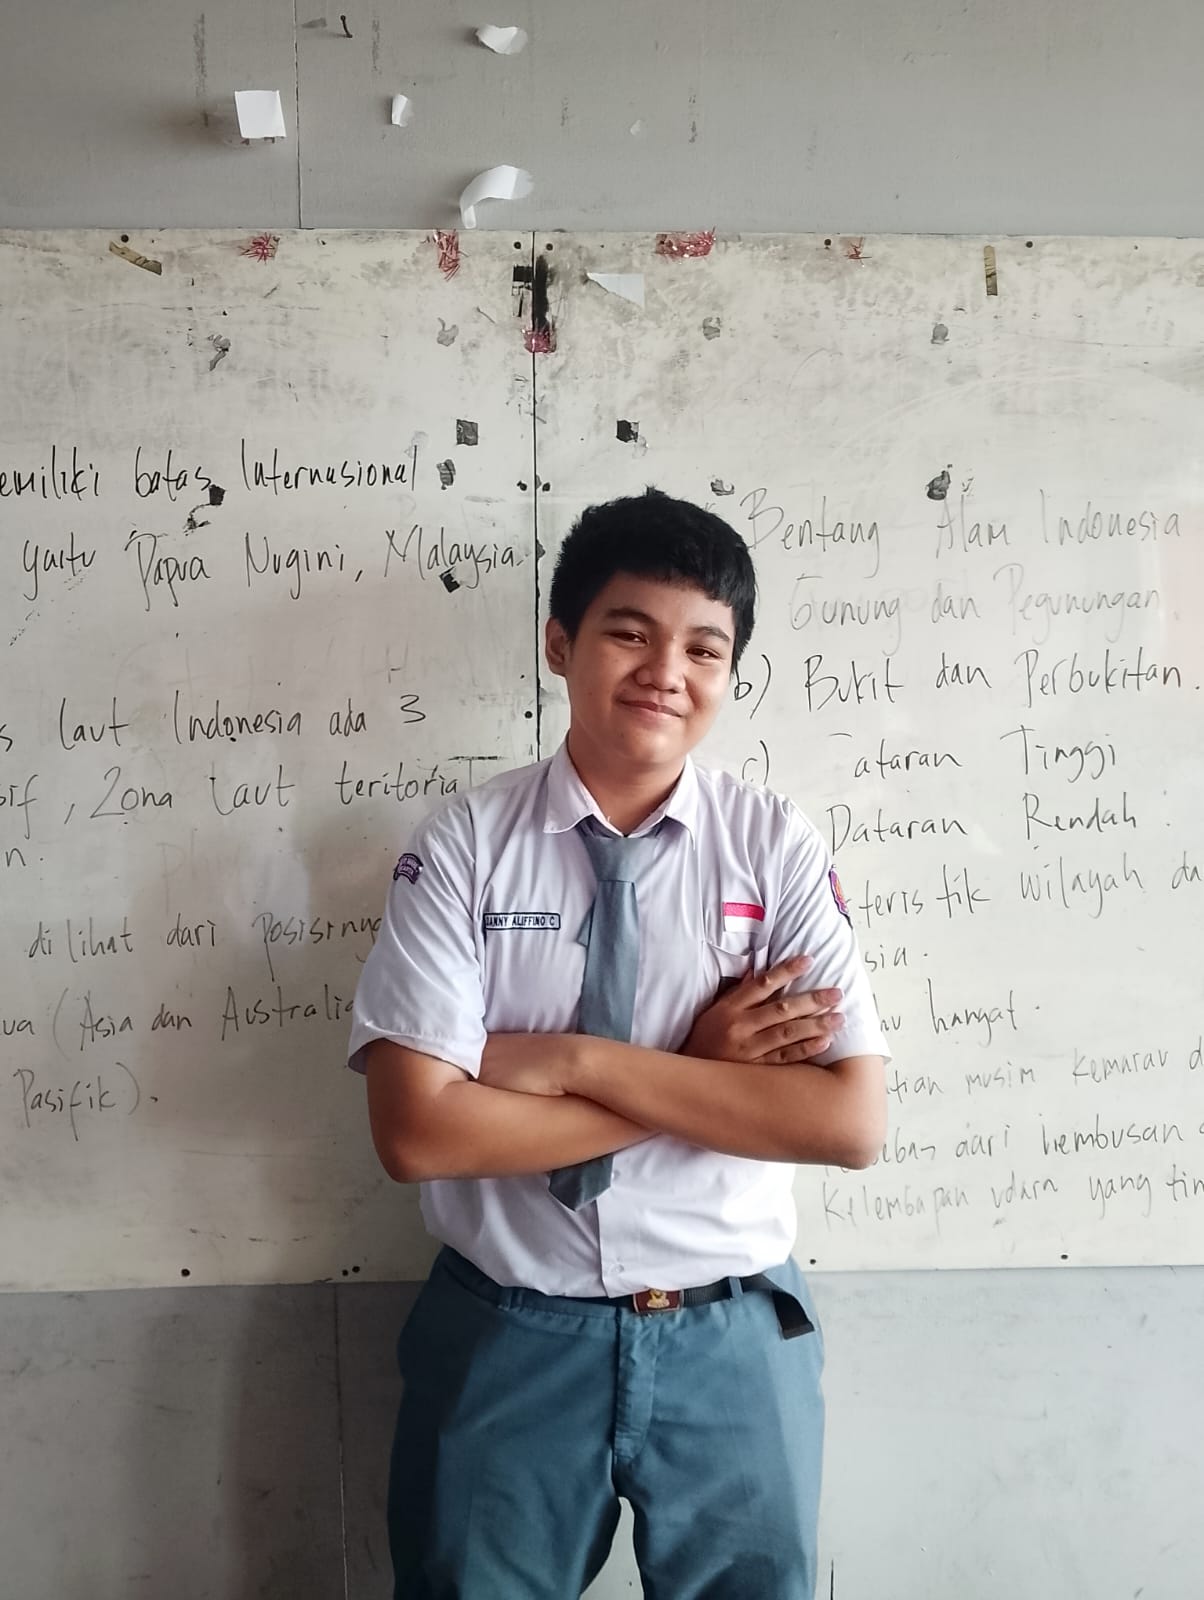 emiliki batas Internasional
yaitu Papua Nugini, Malaysia.
s laut Indonesia ada 3
sif, Zona laut teritorial
n.
dilihat dari posisinya
ua (Asia dan Australia
Pasifik).
Bentang Alam Indonesia
Gunung dan Pegunungan
b) Bukit dan Perbukitan.
c) ataran Tinggi
Dataran Rendah.
teristik wilayah da
sia.
hu hangat.
tian musim kemarau d
bebas dari hembusan
Kelembapan udara yang tin
DANNY ALIFFINO C